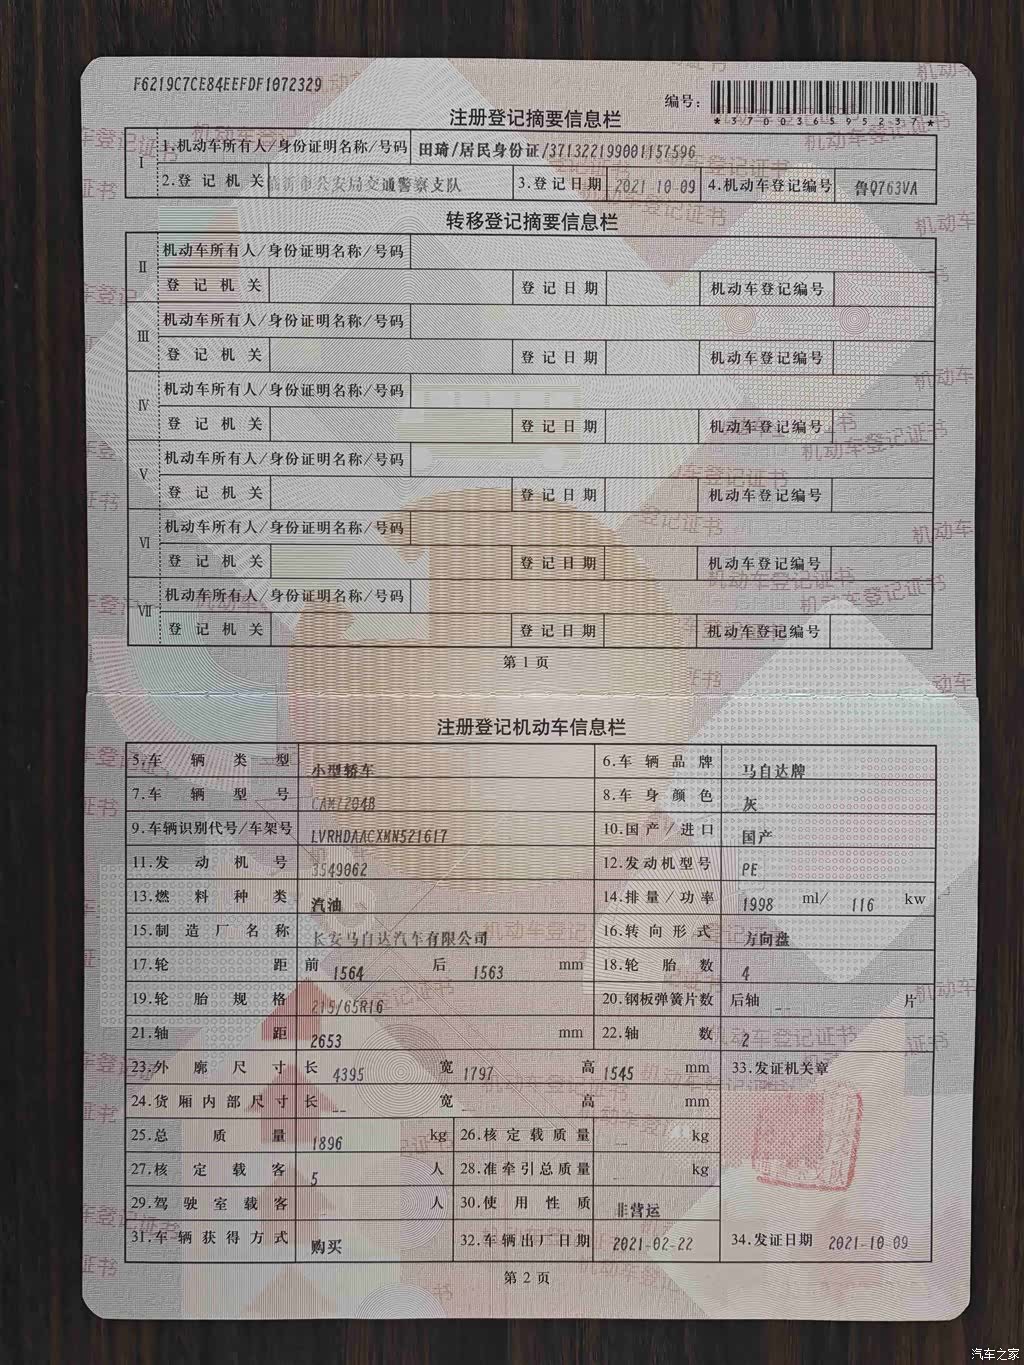 F6219C7CE84EEFDF1072329
编号:
*370036595237*
注册登记摘要信息栏
Ⅰ 1.机动车所有人/身份证明名称/号码 田琦/居民身份证/371322199001157596
2.登记机关 临沂市公安局交通警察支队 3.登记日期 2021-10-09 4.机动车登记编号 鲁Q763VA
转移登记摘要信息栏
Ⅱ 机动车所有人/身份证明名称/号码
登记机关 登记日期 机动车登记编号
Ⅲ 机动车所有人/身份证明名称/号码
登记机关 登记日期 机动车登记编号
Ⅳ 机动车所有人/身份证明名称/号码
登记机关 登记日期 机动车登记编号
Ⅴ 机动车所有人/身份证明名称/号码
登记机关 登记日期 机动车登记编号
Ⅵ 机动车所有人/身份证明名称/号码
登记机关 登记日期 机动车登记编号
Ⅶ 机动车所有人/身份证明名称/号码
登记机关 登记日期 机动车登记编号
第1页
注册登记机动车信息栏
5.车辆类型 小型轿车 6.车辆品牌 马自达牌
7.车辆型号 CAM7204B 8.车身颜色 灰
9.车辆识别代号/车架号 LVRHDAACXMN521617 10.国产/进口 国产
11.发动机号 3549062 12.发动机型号 PE
13.燃料种类 汽油 14.排量/功率 1998 ml/ 116 kw
15.制造厂名称 长安马自达汽车有限公司 16.转向形式 方向盘
17.轮距 前 1564 后 1563 mm 18.轮胎数 4
19.轮胎规格 215/65R16 20.钢板弹簧片数 后轴 -- 片
21.轴距 2653 mm 22.轴数 2
23.外廓尺寸 长 4395 宽 1797 高 1545 mm 33.发证机关章
24.货厢内部尺寸 长 -- 宽 -- 高 -- mm
25.总质量 1896 kg 26.核定载质量 -- kg
27.核定载客 5 人 28.准牵引总质量 -- kg
29.驾驶室载客 人 30.使用性质 非营运
31.车辆获得方式 购买 32.车辆出厂日期 2021-02-22 34.发证日期 2021-10-09
第2页
汽车之家